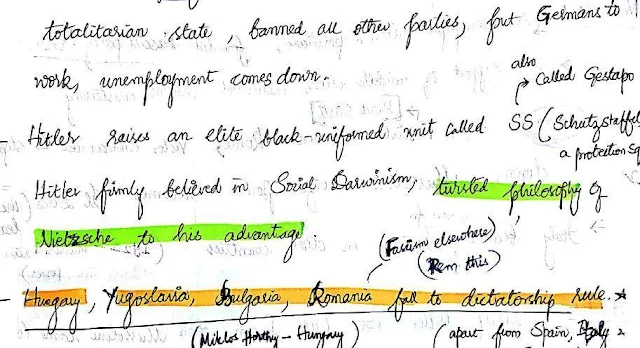 totalitarian state, banned all other parties, put Germans to
work, unemployment comes down.
also
Called Gestapo
Hitler raises an elite black-uniformed unit called SS (Schutzstaffel
a protection sq
Hitler firmly believed in Social Darwinism, twisted philosophy of
Nietzsche to his advantage.
(Fasism elsewhere)
(Rem this)
- Hungary, Yugoslavia, Bulgaria, Romania fall to dictatorship rule.
(Miklos Horthy - Hungary)
(apart from Spain, Italy